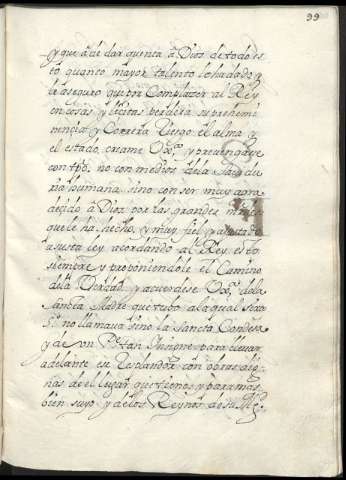 99
y que à de dar quenta à Dios de todo es
to, quanto mayor talento le ha dado, y
le aseguro que por Complazer al Rey
en cosas y licitas perderà su prehemi
nencia, y Correrà riesgo el alma y
el estado, creame Vxª. y prevengase
con tpo. no con medios de la sabidu
ria humana, sino con ser muy agra
decido à Dios por las grandes mrds
que le ha hecho, y muy fiel y ajustado
a su sta ley, acordando al Rey esto
siempre, y proponiendole el Camino
de la Verdad, y acuerdese Vxª. de la
Sancta Madre que tubo a la qual
no llamava sino la Sancta Condesa
y de un Pe. tan insigne, para llevar
adelante ese resplandor con obras dig
nas de el lugar que tiene, y para mas
bien suyo y de los Reynos de su Mgd.